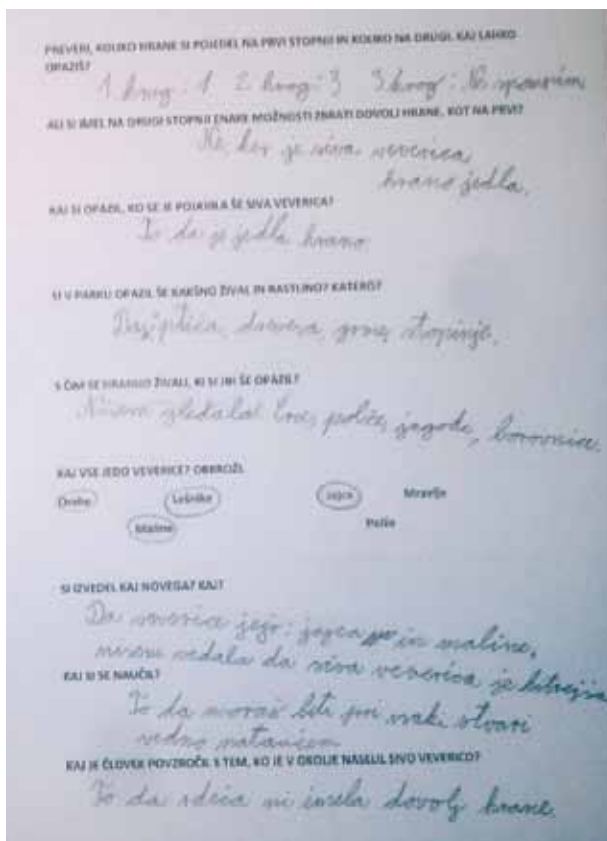 PREVERI, KOLIKO HRANE SI POJEDEL NA PRVI STOPNJI IN KOLIKO NA DRUGI. KAJ LAHKO
OPAZIŠ?
1 krog: 1 2 krog: 3 3 krog: Ne spomnim
ALI SI IMEL NA DRUGI STOPNJI ENAKE MOŽNOSTI ZBRATI DOVOLJ HRANE, KOT NA PRVI?
Ne, ker je siva veverica
hrano jedla.
KAJ SI OPAZIL, KO SE JE POJAVILA ŠE SIVA VEVERICA?
To da je jedla hrano.
SI V PARKU OPAZIL ŠE KAKŠNO ŽIVAL IN RASTLINO? KATERO?
ptiča, drevesa, grme, stopinje.
S ČIM SE HRANIJO ŽIVALI, KI SI JIH ŠE OPAZIL?
Nisem gledala! polže, jagode, borovnice.
KAJ VSE JEDO VEVERICE? OBKROŽI.
Orehe Lešnike Jajca Mravlje
Maline Polže
SI IZVEDEL KAJ NOVEGA? KAJ?
Da veverice jejo: jajca in maline,
nisem vedala da siva veverica je hitrejša
KAJ SI SE NAUČIL?
To da moraš biti pri vsaki stvari
vedno natančen
KAJ JE ČLOVEK POVZROČIL S TEM, KO JE V OKOLJE NASELIL SIVO VEVERICO?
To da rdeča ni imela dovolj hrane.